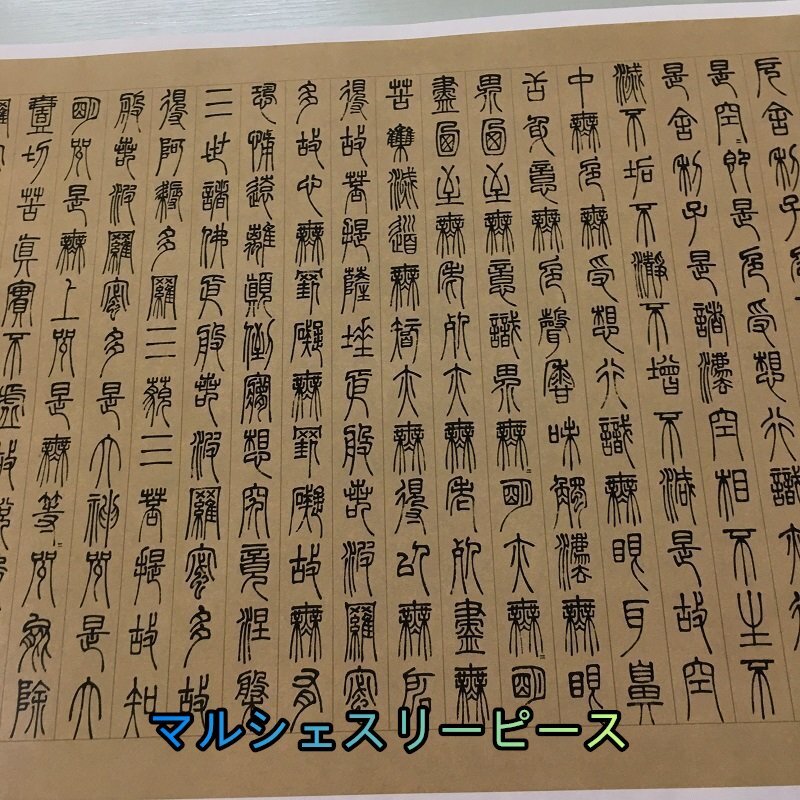 厄舍利子色
是空〻即是色受想行識亦復
是舍利子是諸法空相不生不
滅不垢不淨不增不減是故空
中無色無受想行識無眼耳鼻
舌身意無色聲香味觸法無眼
界乃至無意識界無〻明亦無〻明
盡乃至無老死亦無老死盡無
苦集滅道無智亦無得以無所
得故菩提薩埵依般若波羅蜜
多故心無罣礙無罣礙故無有
恐怖遠離顛倒夢想究竟涅槃
三世諸佛依般若波羅蜜多故
得阿耨多羅三藐三菩提故知
般若波羅蜜多是大神呪是大
明呪是無上呪是無等〻呪能除
壹切苦真實不虛故說
羅
マルシェスリーピース